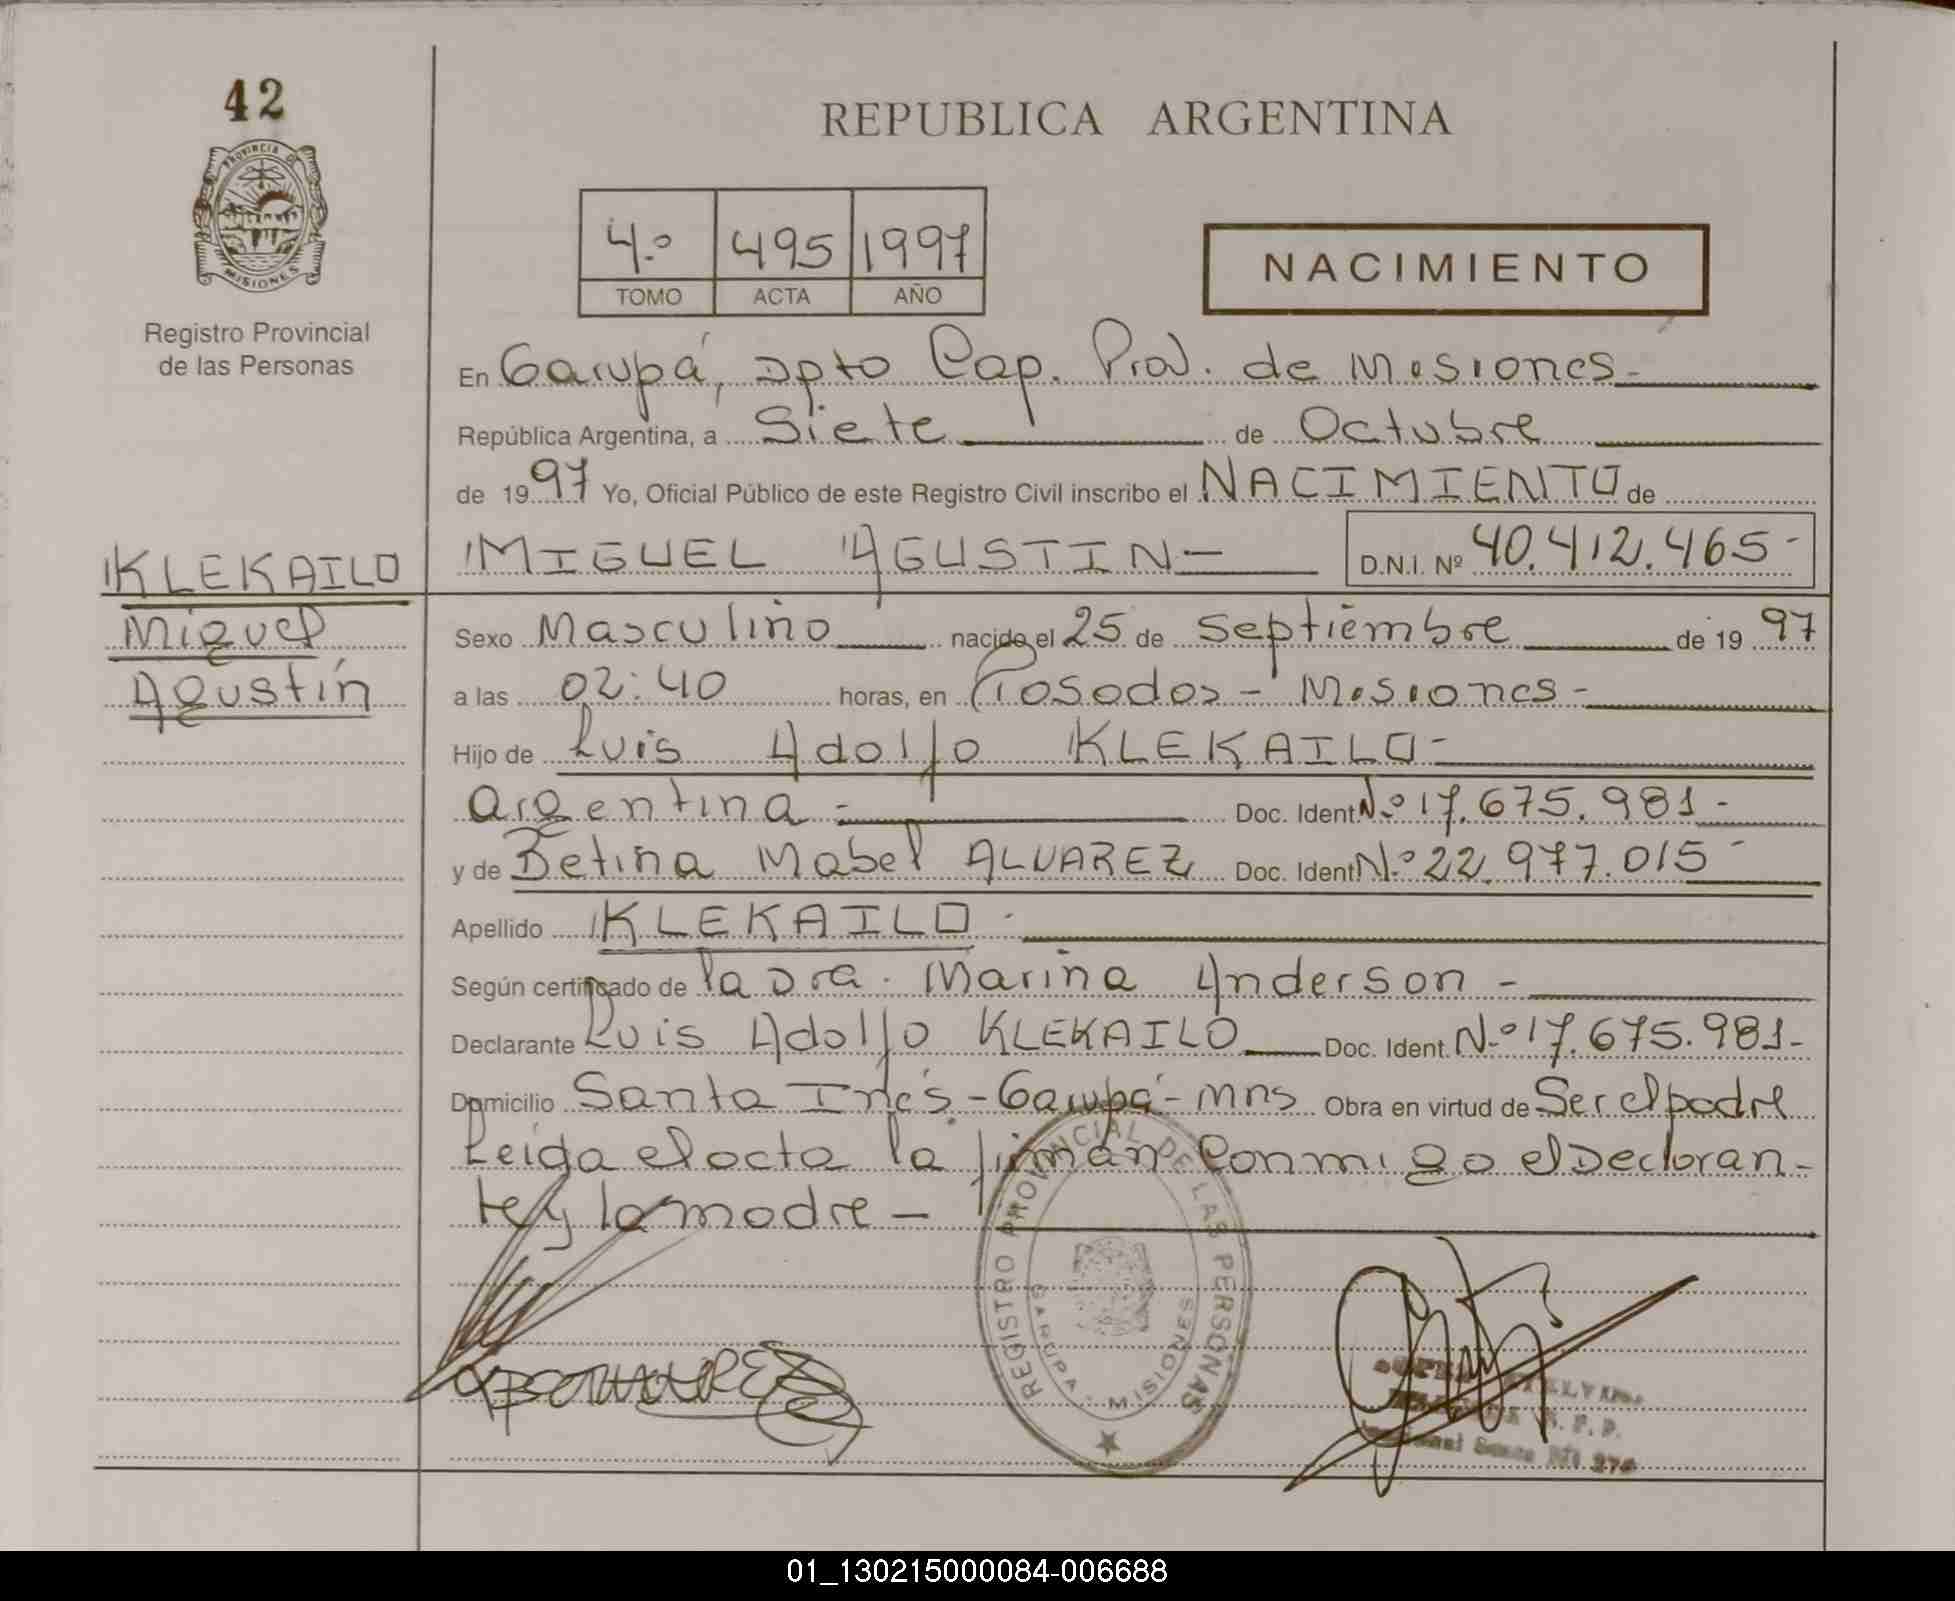 42
REPUBLICA ARGENTINA
PROVINCIA DE
MISIONES
Registro Provincial
de las Personas
4.º 495 1997
TOMO ACTA AÑO
NACIMIENTO
En Garupá, Dpto Cap. Prov. de Misiones.-
República Argentina, a Siete de Octubre
de 1997 Yo, Oficial Público de este Registro Civil inscribo el NACIMIENTO de
KLEKAILO
Miguel
Agustín
MIGUEL AGUSTIN— D.N.I. Nº 40.412.465-
Sexo Masculino nacido el 25 de Septiembre de 1997
a las 02:40 horas, en Posadas - Misiones -
Hijo de Luis Adolfo KLEKAILO-
argentina - Doc. Ident Nº 17.675.981-
y de Betina Mabel ALVAREZ Doc. Ident Nº 22.977.015-
Apellido KLEKAILO -
Según certificado de la Dra. Marina Anderson -
Declarante Luis Adolfo KLEKAILO Doc. Ident. Nº 17.675.981-
Domicilio Santa Inés - Garupá - mns Obra en virtud de Ser el padre
Leída el acta la firman Conmigo el Declaran-
te y la madre -
REGISTRO PROVINCIAL DE LAS PERSONAS
GARUPA - MISIONES
01_130215000084-006688